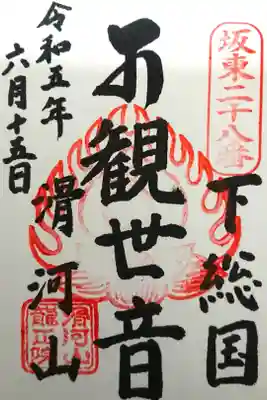 坂東二十八番
下総国
観世音
滑河山
滑河山
龍正院
令和五年
六月十五日